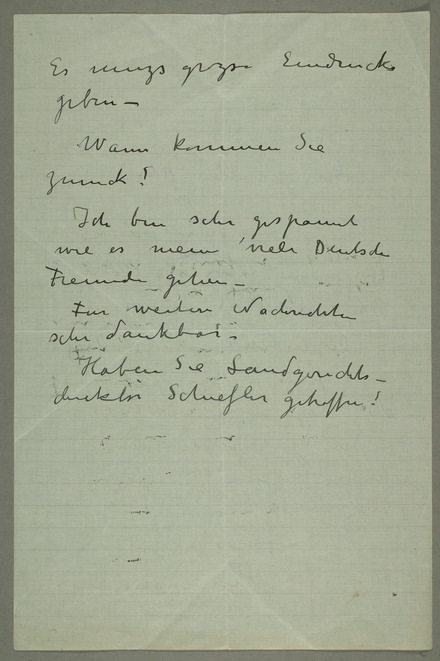 Es muzs grozse Eindrucke
geben –
Wann kommen Sie
zuruck!
Ich bin sehr gespannt
wie es mein viele Deutsche
Freunde gehen –
Fur weitere Nachrichten
sehr dankbar –
Haben Sie Landgerichts-
direktor Schiefler getroffen!